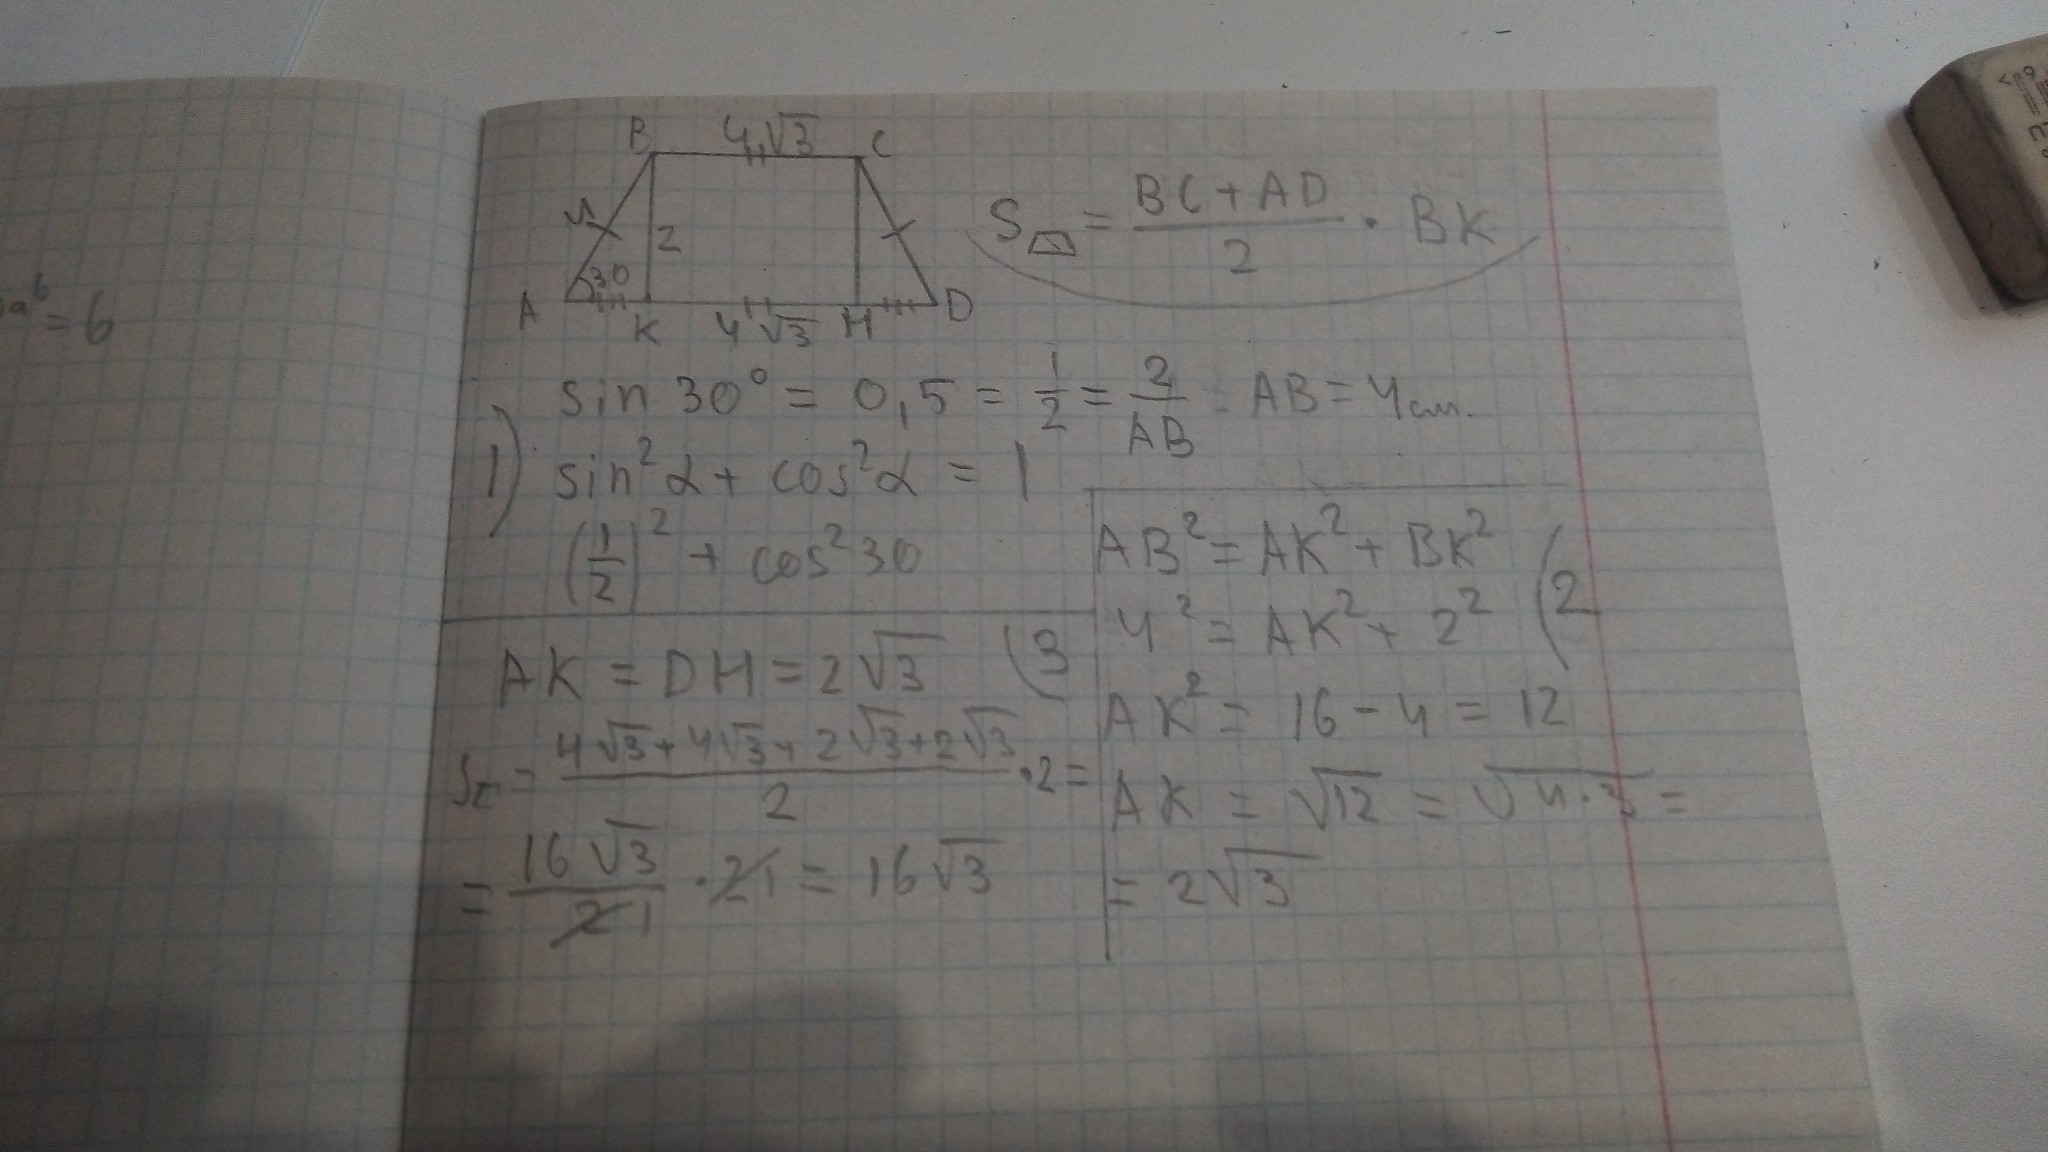 = 6
B 4√3 C
4
2
30
A K 4√3 H D
S = (BC + AD)/2 · BK
sin 30° = 0,5 = 1/2 = 2/AB = AB = 4 см.
1) sin²α + cos²α = 1
(1/2)² + cos²30
AB² = AK² + BK² (2
4² = AK² + 2²
AK² = 16 - 4 = 12
AK = √12 = √4·3 =
= 2√3
AK = DH = 2√3 (3
S = (4√3 + 4√3 + 2√3 + 2√3)/2 · 2 =
= 16√3/2 1 · 2 1 = 16√3